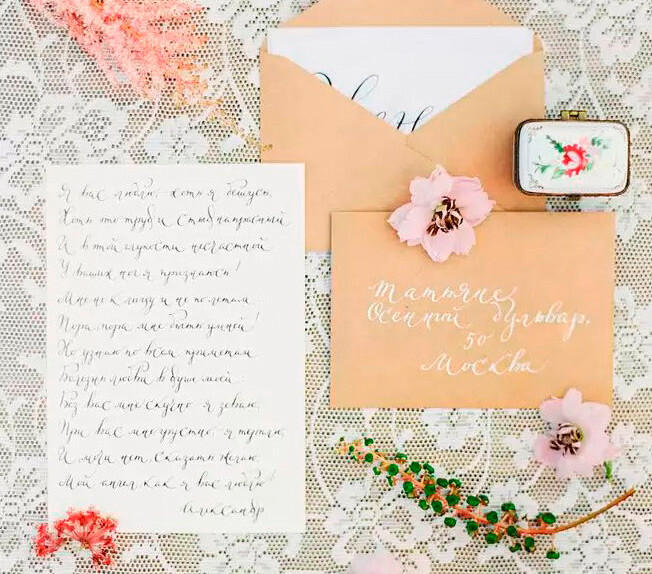 Я вас люблю, хоть я бешусь,
Хоть это труд и стыд напрасный
И в этой глупости несчастной
У ваших ног я признаюсь!
Мне не к лицу и не по летам
Пора, пора мне быть умней!
Но узнаю по всем приметам
Болезнь любви в душе моей:
Без вас мне скучно я зеваю,
При вас мне грустно, я терплю,
И мочи нет, сказать желаю,
Мой ангел, как я вас люблю!
Александр
Татьяне
Осенний бульвар,
50
Москва